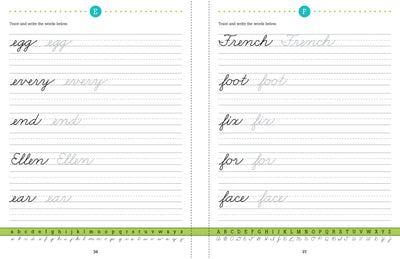 E
Trace and write the words below.
egg egg
every every
end end
Ellen Ellen
ear ear
a b c d e f g h i j k l m n o p q r s t u v w x y z
a b c d e f g h i j k l m n o p q r s t u v w x y z
F
Trace and write the words below.
French French
foot foot
fix fix
for for
face face
A B C D E F G H I J K L M N O P Q R S T U V W X Y Z
A B C D E F G H I J K L M N O P Q R S T U V W X Y Z